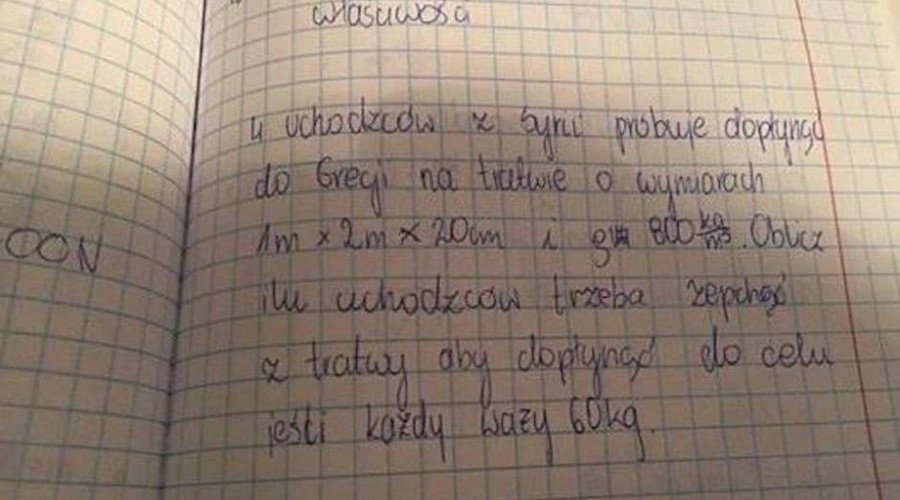 własciwości
4 uchodźców z Syrii próbuje dopłynąć
do Grecji na tratwie o wymiarach
1m × 2m × 20cm i 800 kg/m³. Oblicz
ilu uchodźców trzeba zepchąć
z tratwy aby dopłynąć do celu
jeśli każdy waży 60kg.
OON